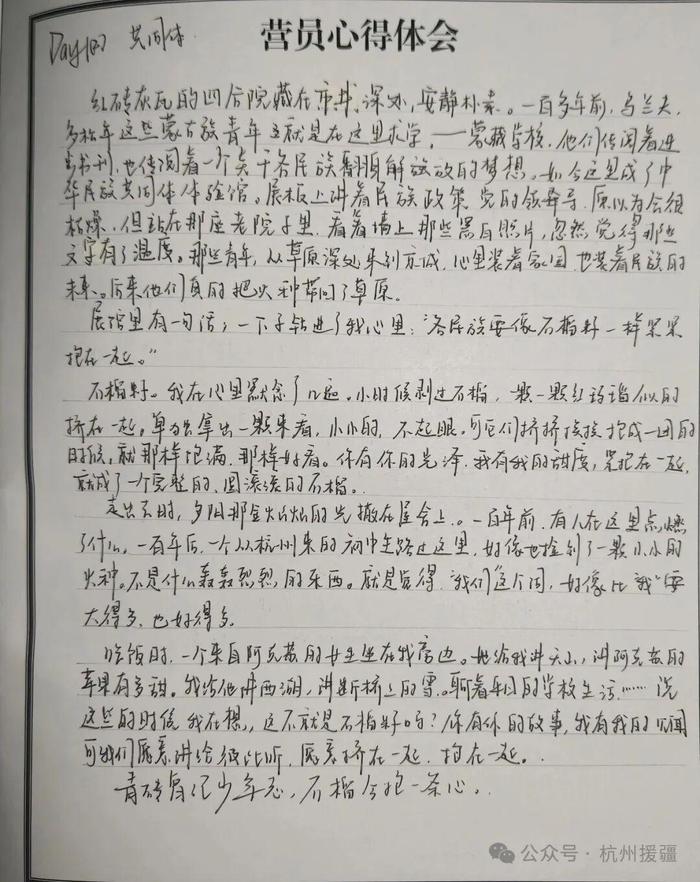 营员心得体会
Day 共同体
红砖灰瓦的四合院藏在市井深处,安静朴素。一百多年前,乌兰夫、
多松年这些蒙古族青年就是在这里求学,——蒙藏学校,他们传阅着进
步书刊,也传阅着一个关于各民族翻身解放的梦想。如今这里成了中
华民族共同体体验馆。展板上讲着民族政策、党的领导,原以为会很
枯燥,但站在那座老院子里,看着墙上那些黑白照片,忽然觉得那些
文字有了温度。那些青年,从草原深处来到京城,心里装着家国,也装着民族的
未来。后来他们真的把火种带回了草原。
展馆里有一句话,一下子钻进了我心里:“各民族要像石榴籽一样紧紧
抱在一起。”
石榴籽。我在心里默念了几遍。小时候剥过石榴,一颗一颗红玛瑙似的
挤在一起。单独拿出一颗来看,小小的,不起眼。可它们挤挤挨挨抱成一团的
时候,就那样饱满,那样好看。你有你的光泽,我有我的甜度,紧抱在一起,
就成了一个完整的、圆滚滚的石榴。
走出去时,夕阳那金灿灿的光撒在屋舍上。一百年前,有人在这里点燃
了什么。一百年后,一个从杭州来的初中生路过这里,好像也捡到了一颗小小的
火种。不是什么轰轰烈烈的东西。就是觉得,“我们”这个词,好像比“我”要
大得多,也好得多。
吃饭时,一个来自阿克苏的女生坐在我旁边。她给我讲天山,讲阿克苏的
苹果有多甜。我给他讲西湖,讲断桥上的雪。聊着每日的学校生活……说
这些的时候,我在想,这不就是石榴籽吗?你有你的故事,我有我的见闻
可我们愿意讲给彼此听,愿意挤在一起,抱在一起。
青砖曾记少年志,石榴今抱一条心。
公众号·杭州援疆